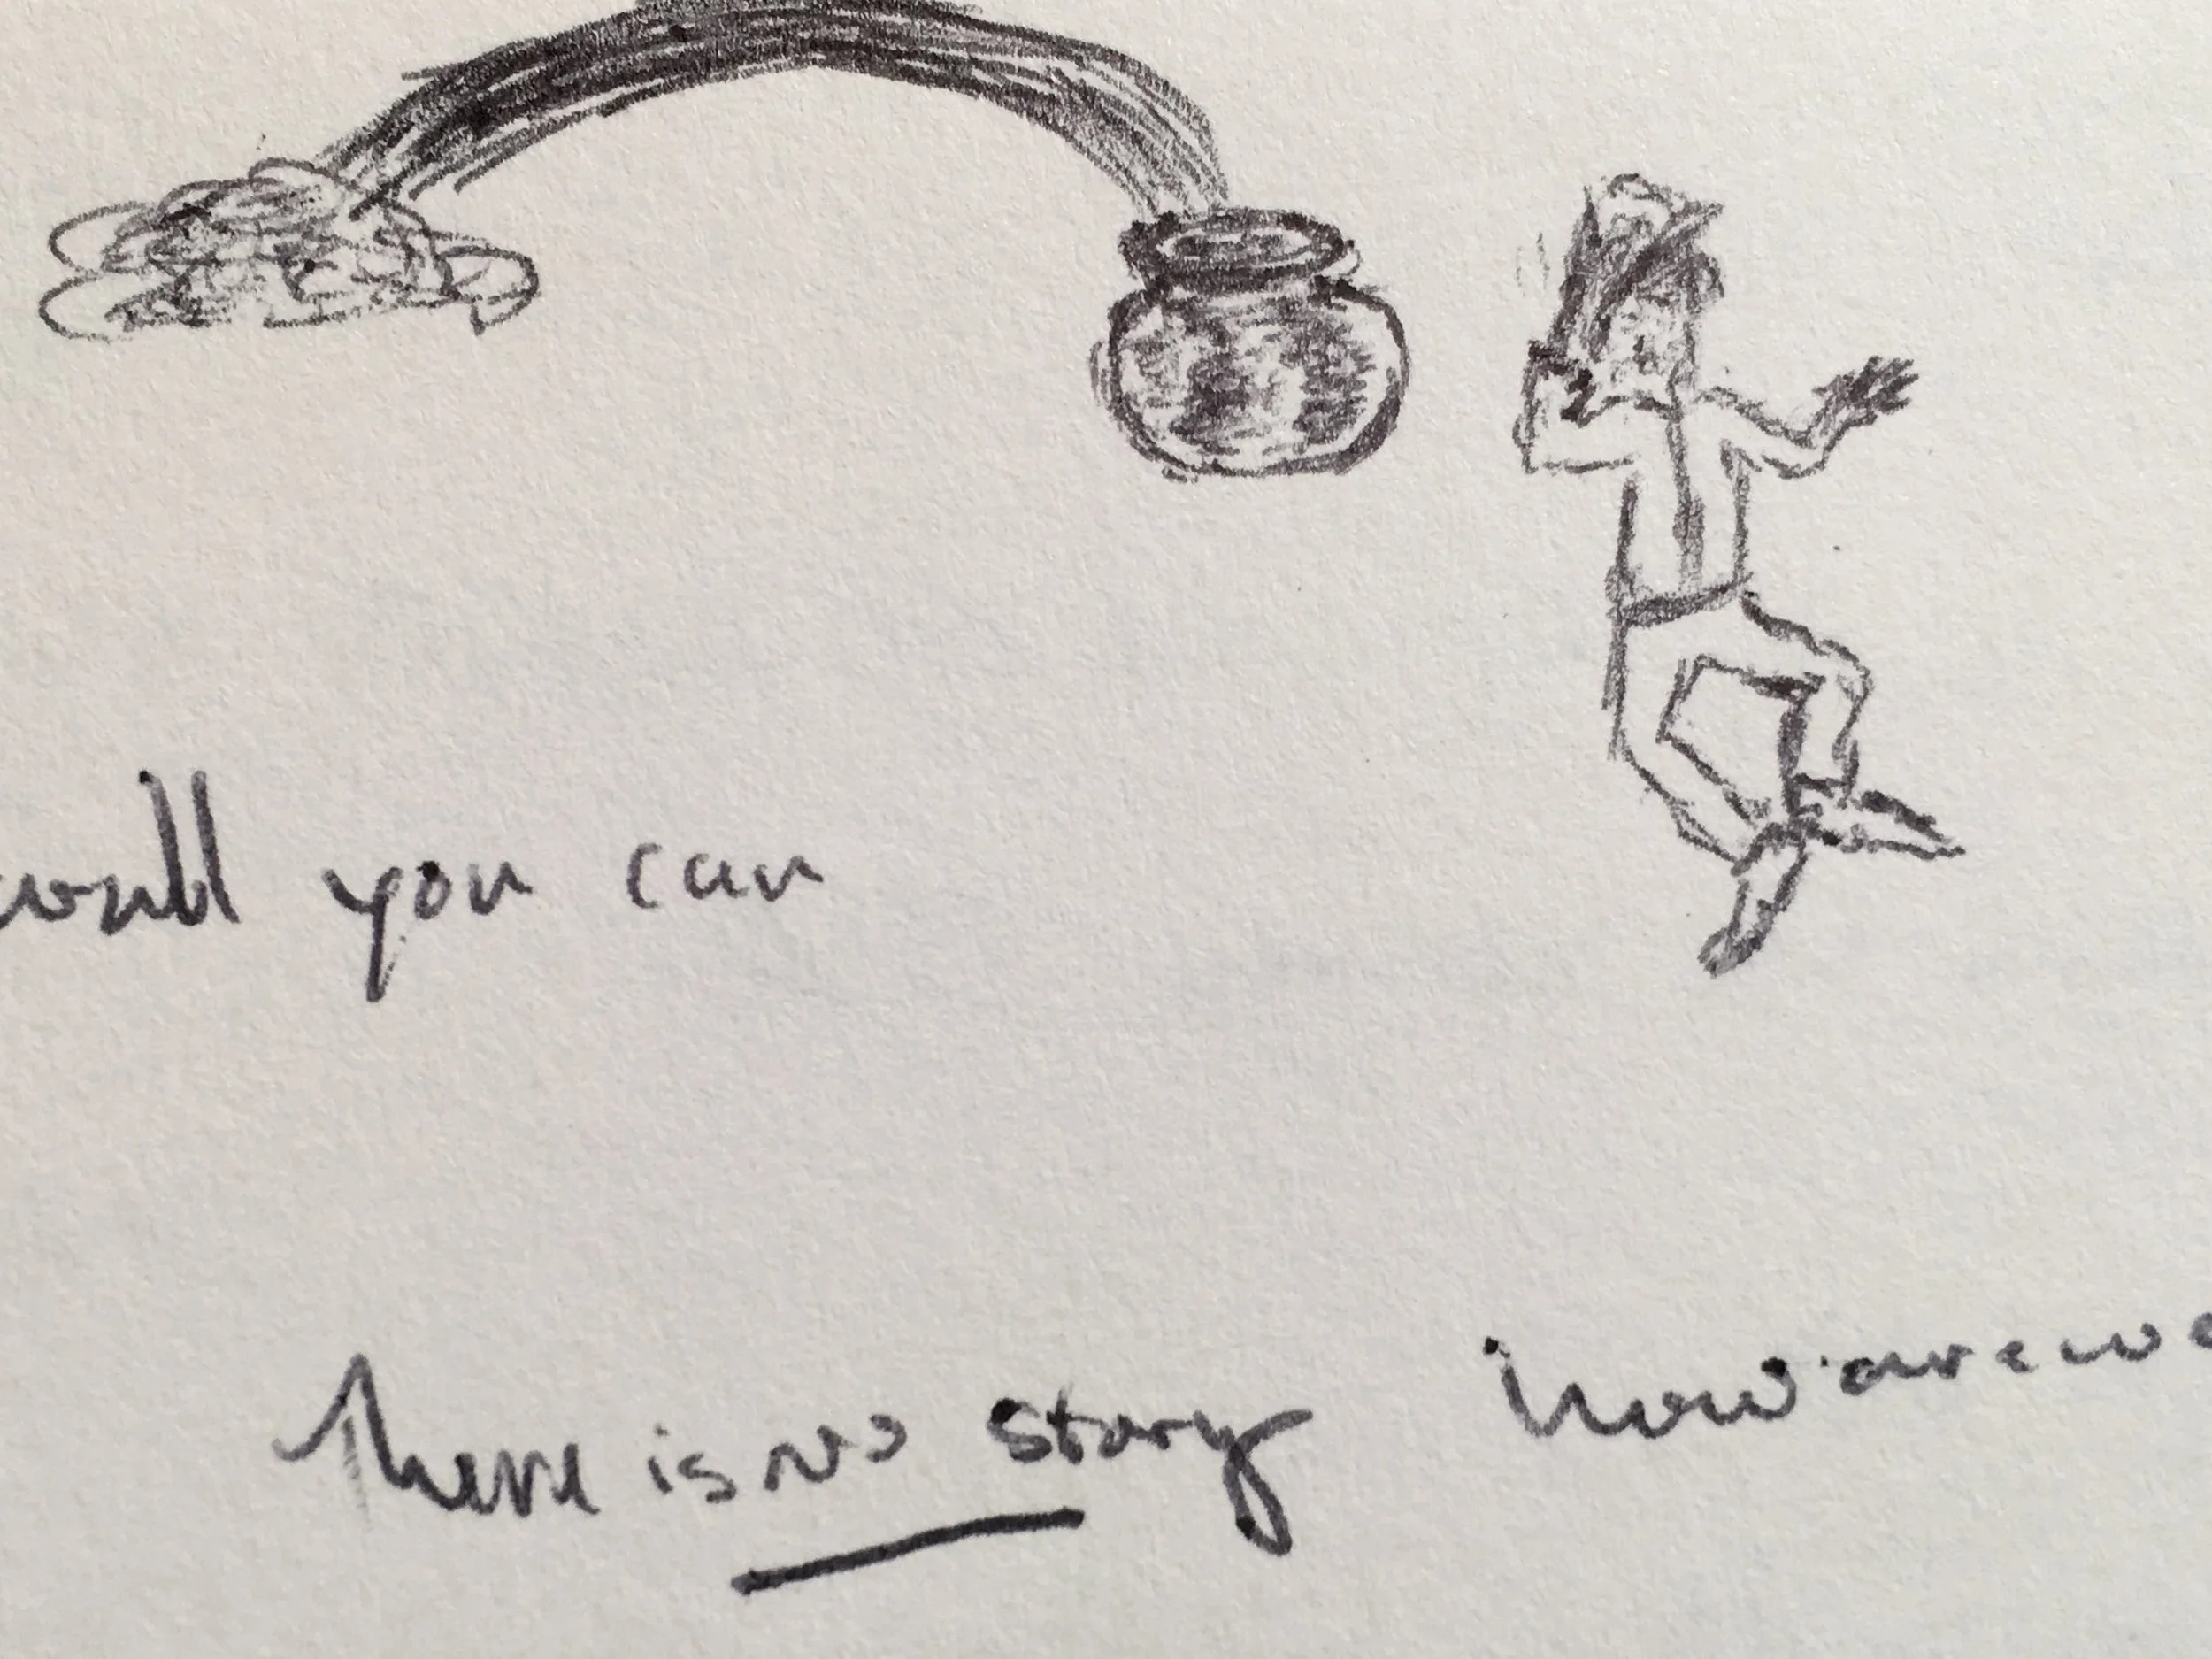 you can
There is no story how are we